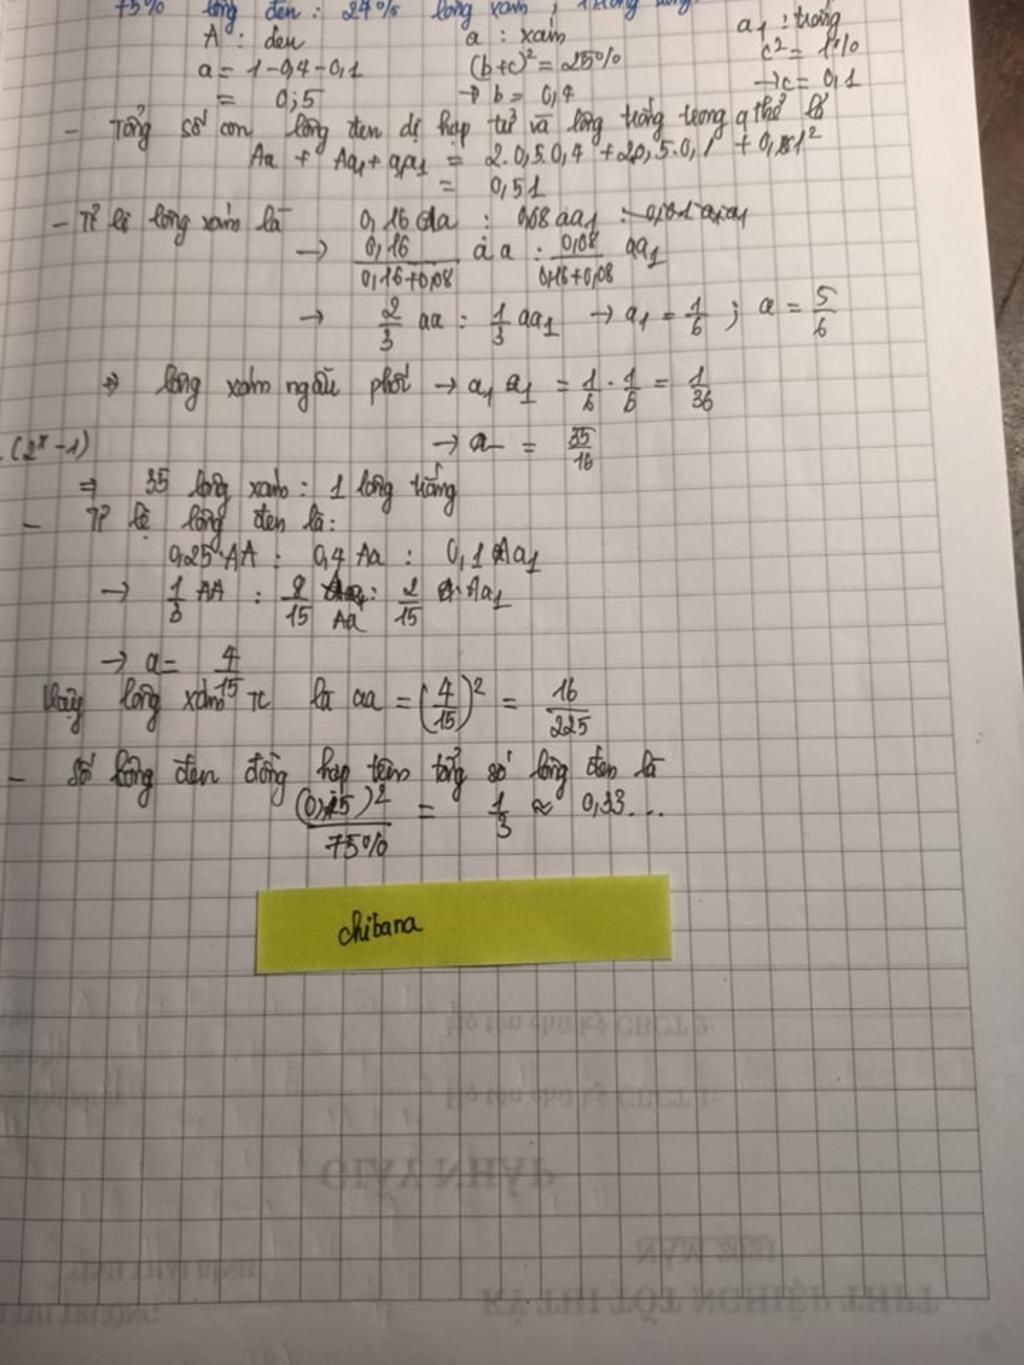 75% lông đen : 24% lông xám ; 1% lông
A : đen a : xám a1 : trắng
a = 1-0,4-0,1 (b+c)² = 25% c² = 1%
= 0,5 → b = 0,4 → c = 0,1
- Tổng số con lông đen dị hợp tử và lông trắng trong q thể là
Aa + Aa1 + a1a1 = 2.0,5.0,4 + 2.0,5.0,1 + 0,1²
= 0,51
- Tỉ lệ lông xám là 0,16 aa : 0,08 aa1 : 0,01 a1a1
→ 0,16/(0,16+0,08) aa : 0,08/(0,16+0,08) aa1
→ 2/3 aa : 1/3 aa1 → a1 = 1/6 ; a = 5/6
⇒ lông xám ngẫu phối → a1 a1 = 1/6 . 1/6 = 1/36
.(2ˣ-1) → a- = 35/16
⇒ 35 lông xám : 1 lông trắng
- Tỉ lệ lông đen là :
0,25 AA : 0,4 Aa : 0,1 Aa1
→ 1/3 AA : 8/15 Aa : 2/15 Aa1
→ a = 4/15
Vậy lông xám TC là aa = (4/15)² = 16/225
- Số lông đen đồng hợp trên tổng số lông đen là
(0,5)²/75% = 1/3 ≈ 0,33...
chibana
Họ tên chữ ký CBCT 2:
Họ tên chữ ký CBCT 1:
GIẤY NHÁP
KỲ THI TỐT NGHIỆP THPT